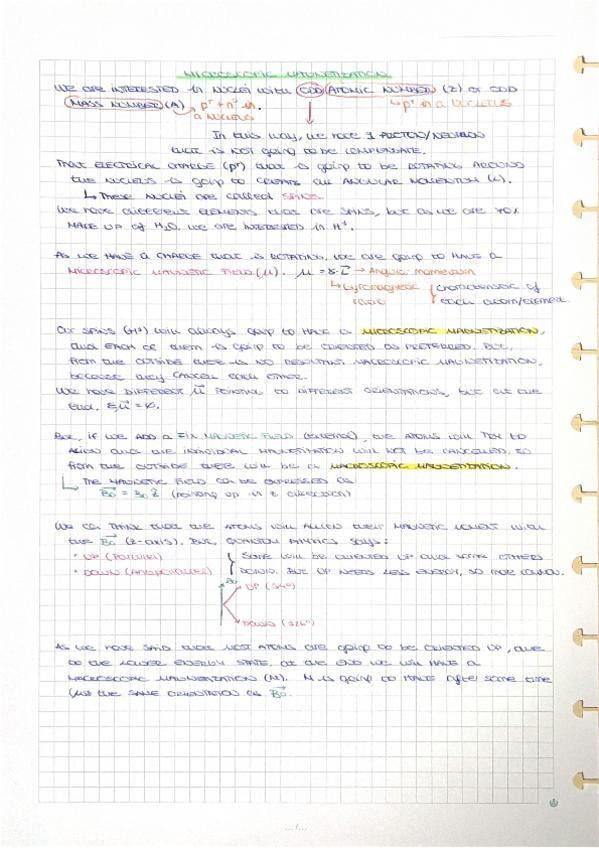 MICROSCOPIC MAGNETIZATION
WE ARE INTERESTED in NUCLEI with ODD ATOMIC NUMBER (Z) or ODD
MASS NUMBER (A) → p+ + n° in a NUCLEUS ↳ p+ in a NUCLEUS
In this way, we have 1 PROTON/NEUTRON
that is NOT going to be COMPENSATE.
THAT ELECTRICAL CHARGE (p+) that is going to be ROTATING AROUND
the NUCLEUS is going to CREATE an ANGULAR MOMENTUM (L).
↳ These NUCLEI are called SPINS.
We have DIFFERENT ELEMENTS that are SPINS, but as we are 70%
MAKE UP of H2O, WE ARE INTERESTED in H+.
As we HAVE A CHARGE that is ROTATING, we are going to HAVE a
MICROSCOPIC MAGNETIC FIELD (μ). μ = γ · L → Angular momentum
↳ Gyromagnetic ratio { characteristic of each atom/element
Our SPINS (H+) will always going to HAVE a MICROSCOPIC MAGNETIZATION,
and EACH of them is going to be ORIENTED as PREFERRED. But,
from the OUTSIDE there is NO RESULTANT MACROSCOPIC MAGNETIZATION,
because they CANCEL each other.
We HAVE DIFFERENT μ POINTING to DIFFERENT ORIENTATIONS, but at the
end, Σμ = 0.
But, if we ADD a FIX MAGNETIC FIELD (external), the ATOMS will TRY to
ALIGN and the INDIVIDUAL MAGNETIZATION will NOT be CANCELLED, so
from the OUTSIDE there will be a MACROSCOPIC MAGNETIZATION.
↳ The MAGNETIC FIELD can be EXPRESSED as
B0 = B0 ẑ (pointing up in z direction)
We can THINK that the ATOMS will ALLIEN their MAGNETIC MOMENT with
the B0 (z-axis). But, QUANTUM PHYSICS says:
• UP (Parallel) { Some will be ORIENTED UP and some OTHERS
• DOWN (Antiparallel) DOWN. But UP NEEDS LESS ENERGY, so MORE COMMON.
B0
UP (54°)
DOWN (126°)
As we HAVE SAID that MOST ATOMS are going to be ORIENTED UP, due
to the LOWER ENERGY STATE, at the END we will HAVE a
MACROSCOPIC MAGNETIZATION (M). M is going to HAVE after some time
the SAME ORIENTATION as B0.
.../...